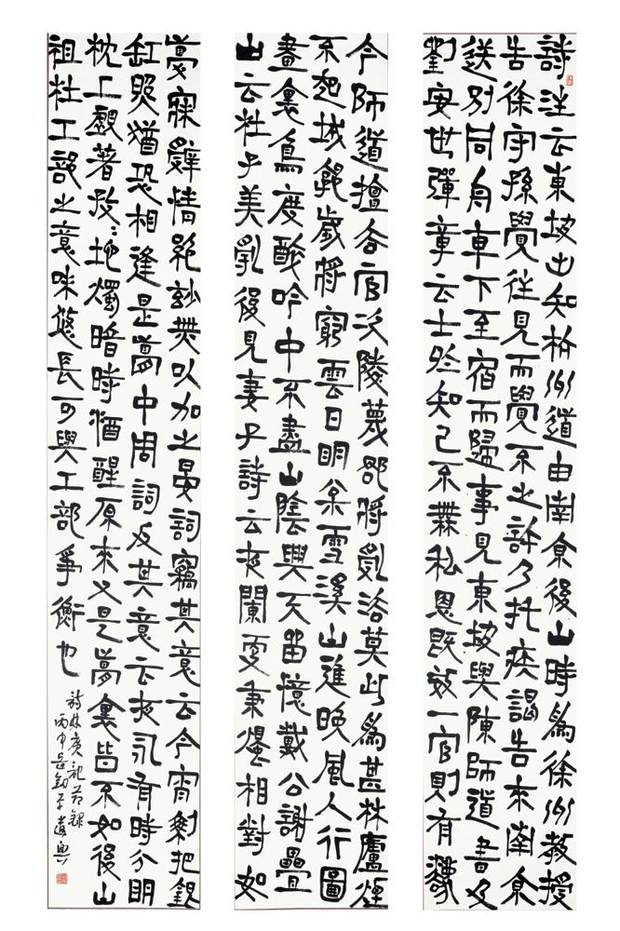 詩注云東坡出知杭州道由南京後山時為徐州教授
告徐守孫覺往見而覺不之許乃托疾謁告來南京
送別同舟東下至宿而歸事見東坡與陳師道書及
劉安世彈章云士於知己不無私恩既效一官則有灋
令師道擅去官次陵蔑郡將亂法莫此為甚林廬煙
不起城郭歲將窮雲日明松雪溪山進晚風人行圖
畫裏鳥度醉吟中不盡山陰興天留憶戴公謝疊
山云杜子美亂後見妻子詩云夜闌更秉燭相對如
夢寐辭情絕妙無以加之晏詞竊其意云今宵剩把銀
缸照猶恐相逢是夢中周詞反其意云夜永有時分明
枕上覷著孜々地燭暗時酒醒原來又是夢裏皆不如後山
祖杜工部之意味悠長可與工部爭衡也
詩林廣記節錄
丙申岳劍平遣興